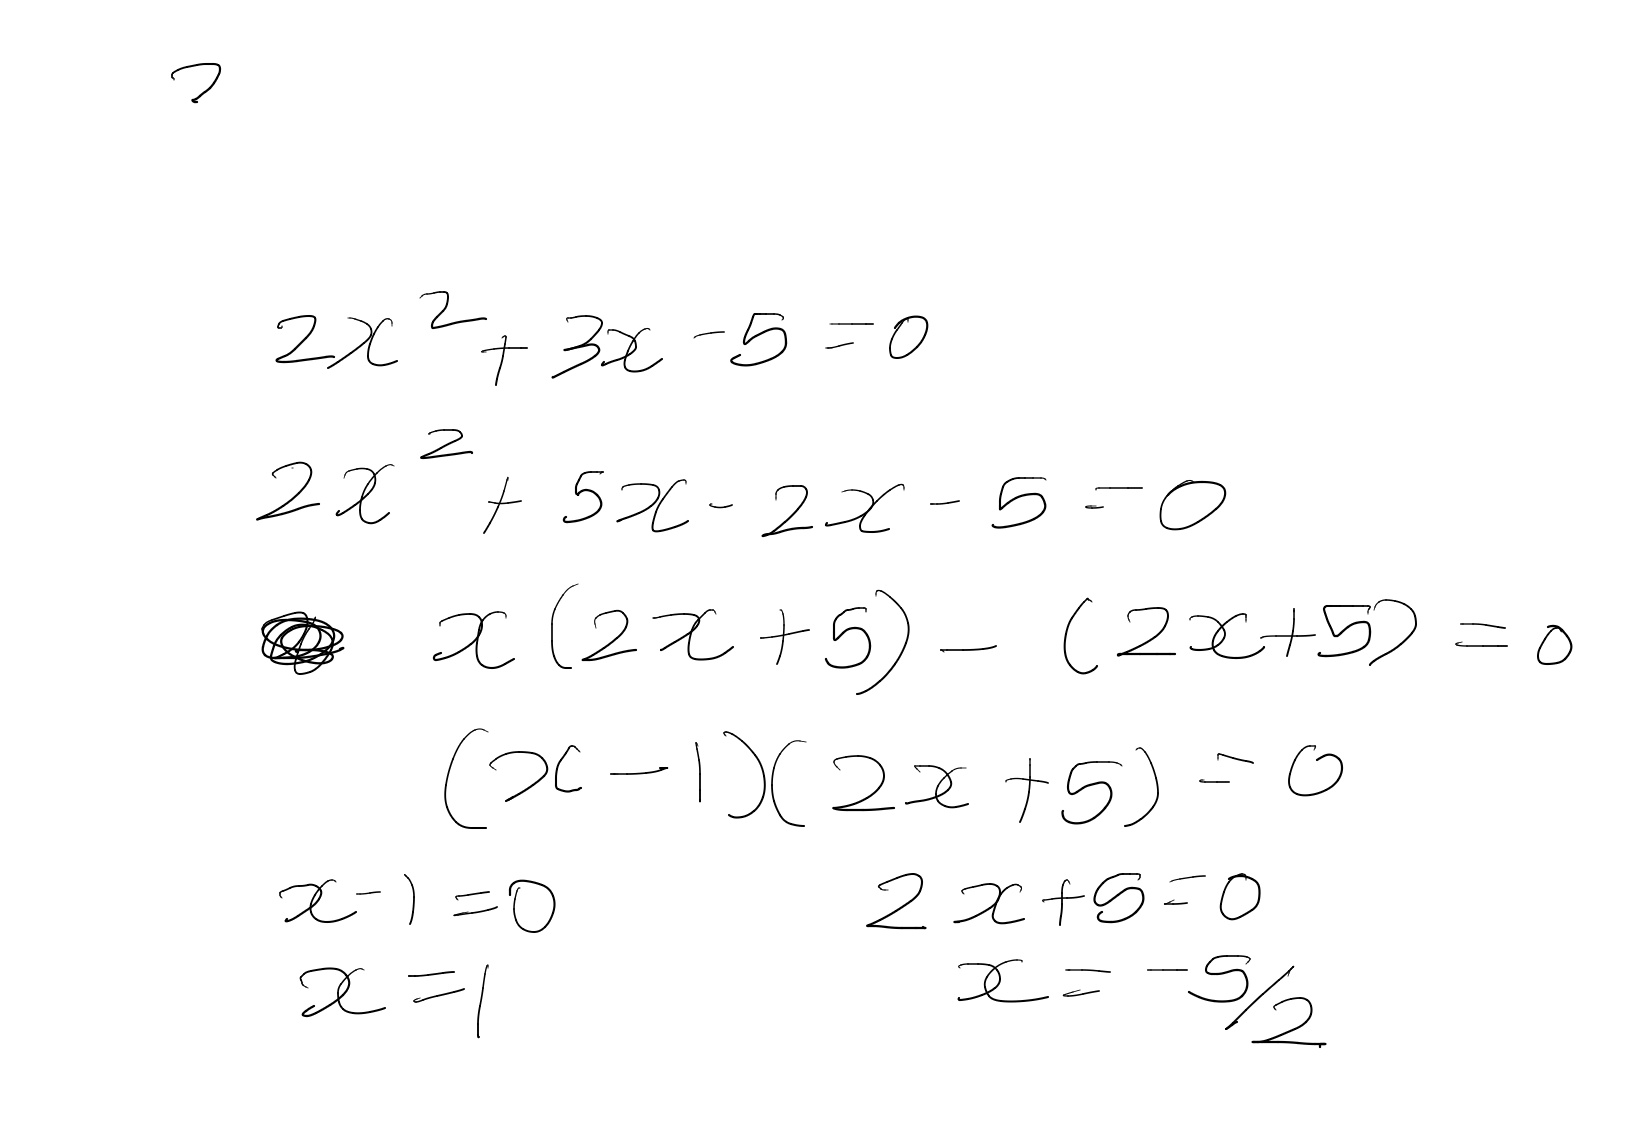 2x² + 3x - 5 = 0
2x² + 5x - 2x - 5 = 0
x (2x + 5) - (2x + 5) = 0
(x - 1)(2x + 5) = 0
x - 1 = 0 2x + 5 = 0
x = 1 x = -5/2